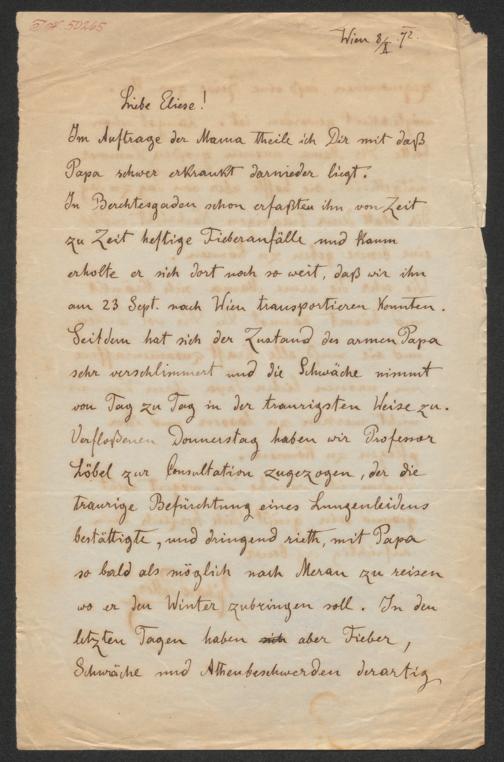 J.N. 50265
Wien 8/X 72.
Liebe Eliese!
Im Auftrage der Mama theile ich Dir mit daß
Papa schwer erkrankt darnieder liegt.
In Berchtesgaden schon erfaßten ihn von Zeit
zu Zeit heftige Fieberanfälle und kaum
erholte er sich dort noch so weit, daß wir ihn
am 23 Sept. nach Wien transportieren konnten.
Seitdem hat sich der Zustand des armen Papa
sehr verschlimmert und die Schwäche nimmt
von Tag zu Tag in der traurigsten Weise zu.
Verfloßenen Donnerstag haben wir Professor
Löbel zur Consultation zugezogen, der die
traurige Befürchtung eines Lungenleidens
bestättigte, und dringend rieth, mit Papa
so bald als möglich nach Meran zu reisen
wo er den Winter zubringen soll. In den
letzten Tagen haben sich aber Fieber,
Schwäche und Athenbeschwerden derartig